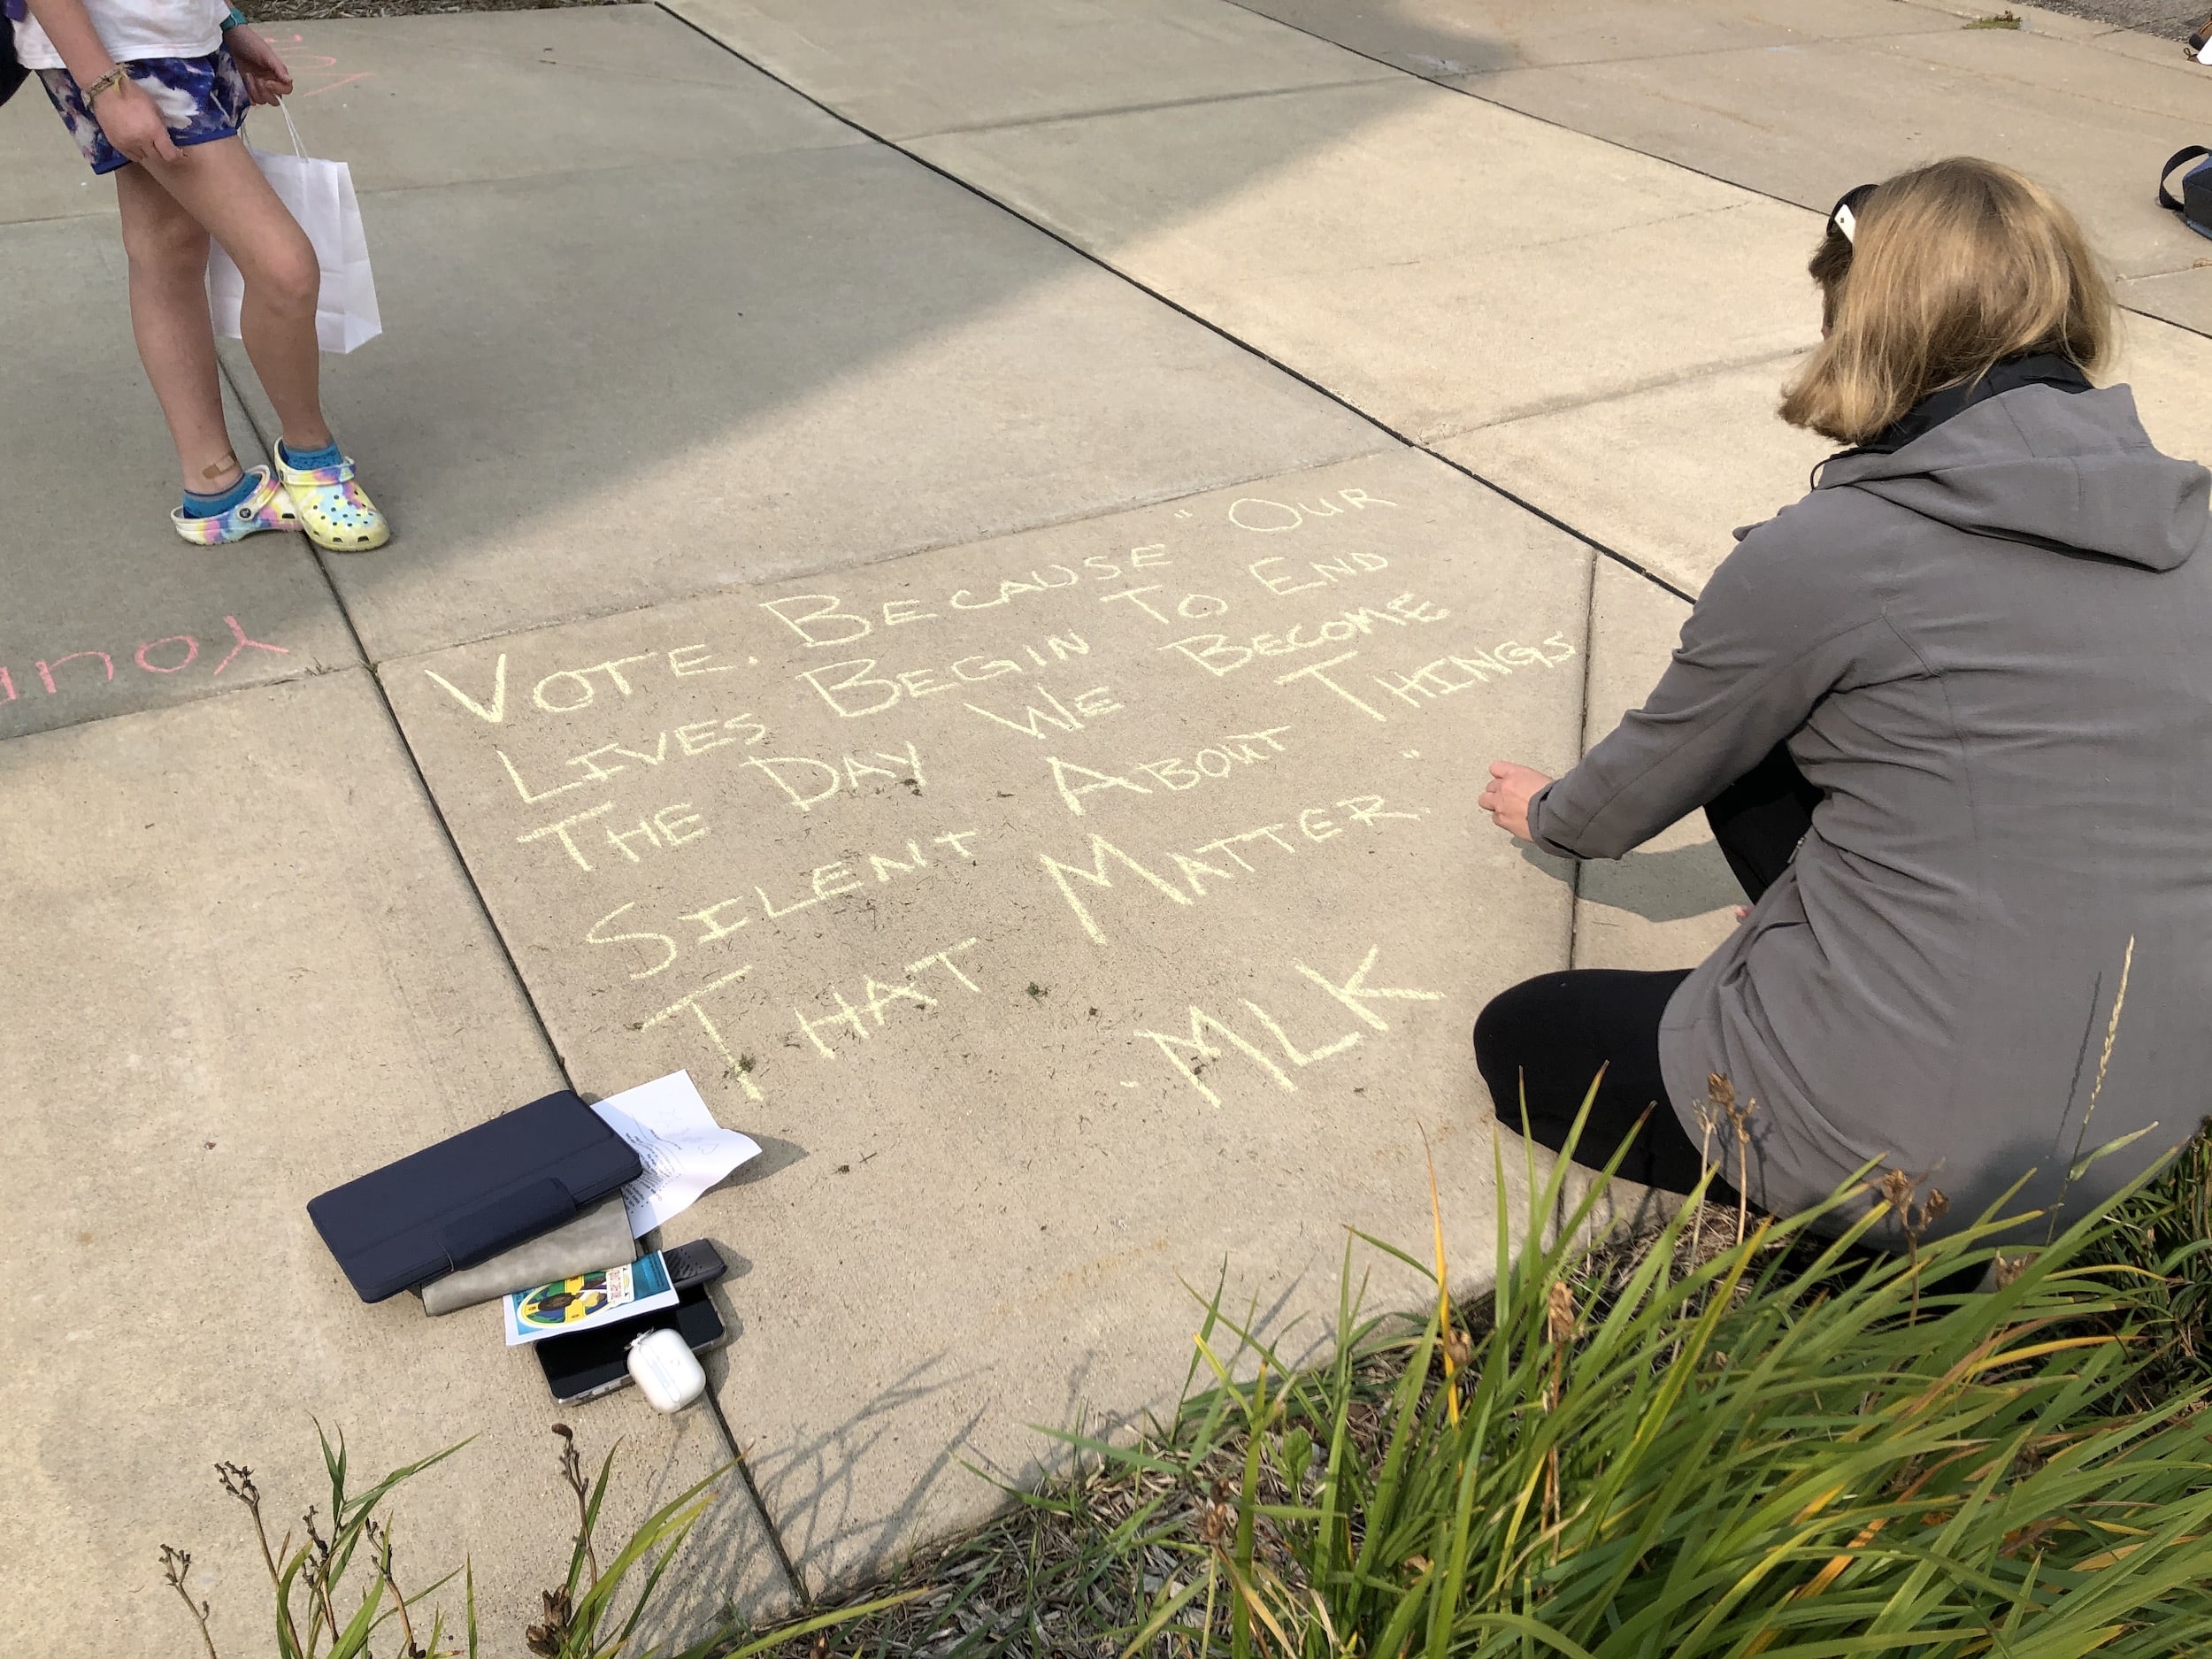 VOTE. BECAUSE "OUR
LIVES BEGIN TO END
THE DAY WE BECOME
SILENT ABOUT THINGS
THAT MATTER."
-MLK
YOU